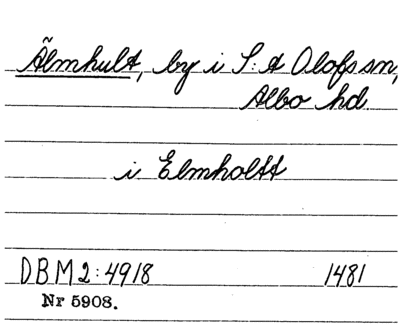 Älmhult, by i S:t Olofs sn,
Albo hd.
i Elmholtt
DBM 2:4918 1481
Nr 5908.